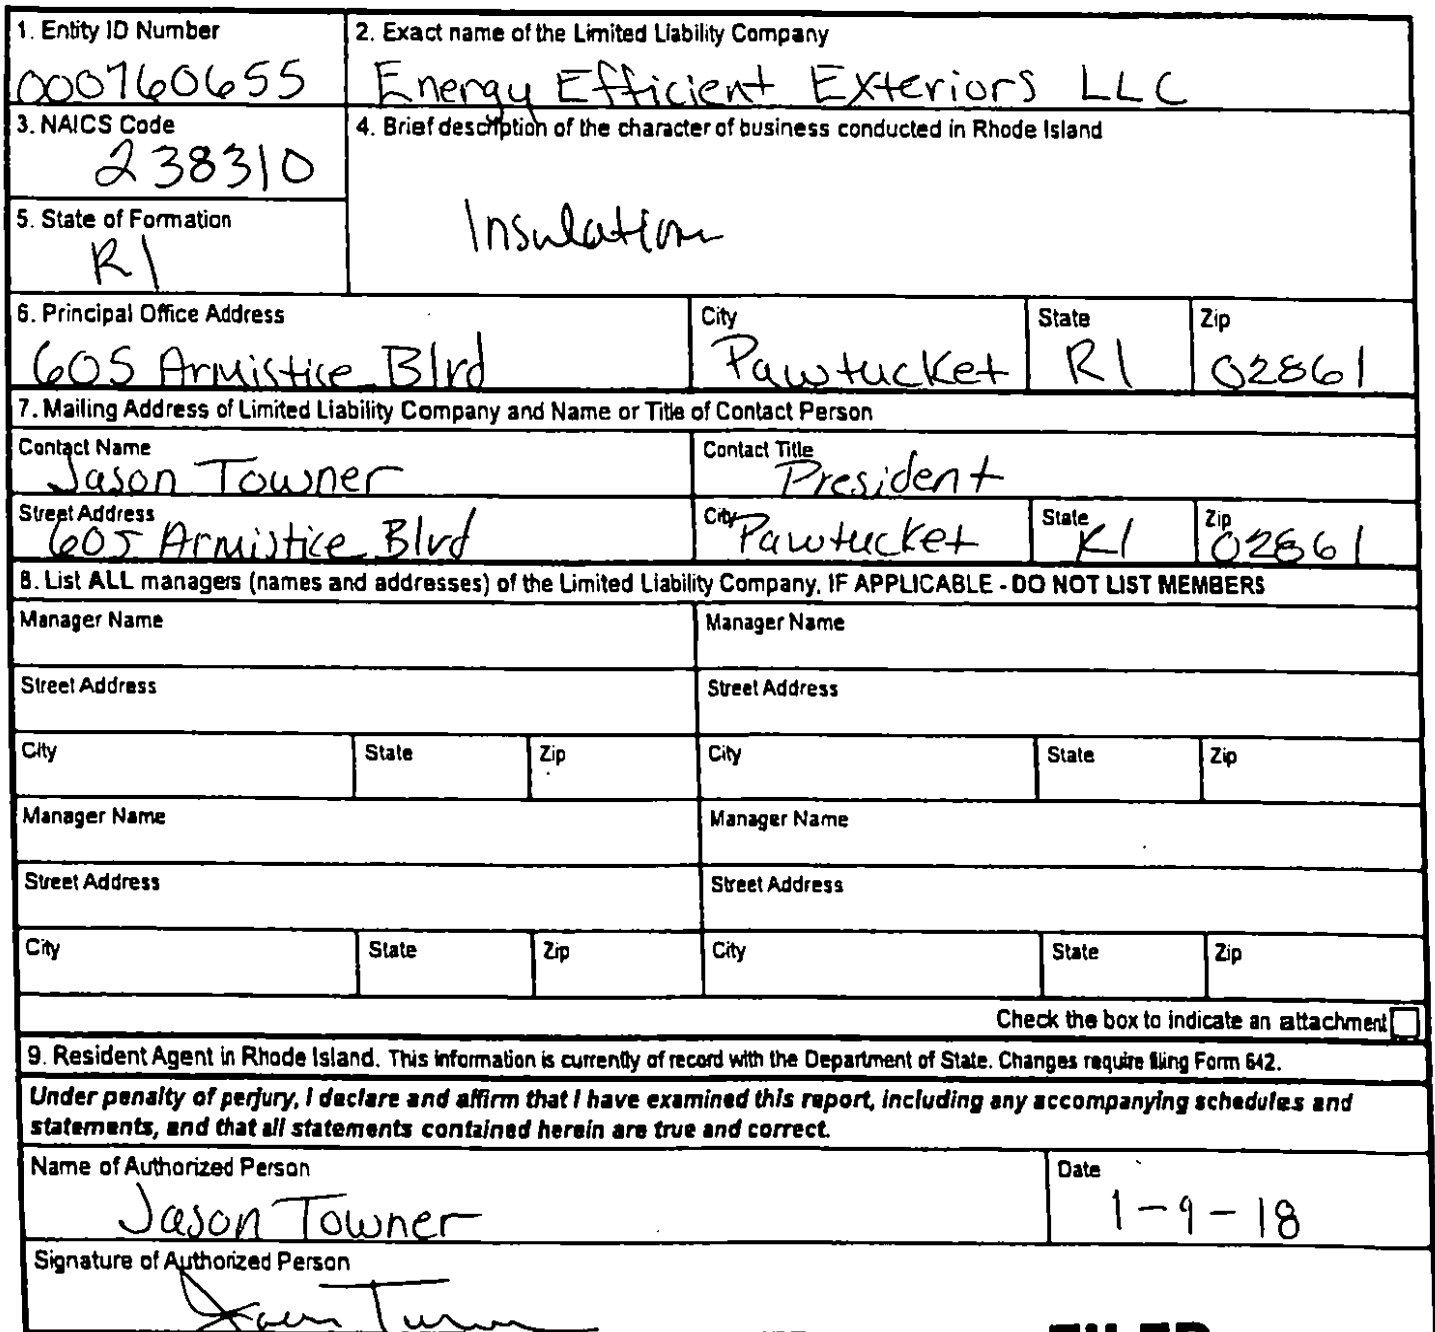 1. Entity ID Number
000760655
2. Exact name of the Limited Liability Company
Energy Efficient Exteriors LLC
3. NAICS Code
238310
4. Brief description of the character of business conducted in Rhode Island
Insulation
5. State of Formation
RI
6. Principal Office Address
605 Armistice Blvd
City
Pawtucket
State
RI
Zip
02861
7. Mailing Address of Limited Liability Company and Name or Title of Contact Person
Contact Name
Jason Towner
Contact Title
President
Street Address
605 Armistice Blvd
City
Pawtucket
State
RI
Zip
02861
8. List ALL managers (names and addresses) of the Limited Liability Company, IF APPLICABLE - DO NOT LIST MEMBERS
Manager Name
Manager Name
Street Address
Street Address
City State Zip City State Zip
Manager Name
Manager Name
Street Address
Street Address
City State Zip City State Zip
Check the box to indicate an attachment
9. Resident Agent in Rhode Island. This information is currently of record with the Department of State. Changes require filing Form 642.
Under penalty of perjury, I declare and affirm that I have examined this report, including any accompanying schedules and
statements, and that all statements contained herein are true and correct.
Name of Authorized Person
Jason Towner
Date
1-9-18
Signature of Authorized Person